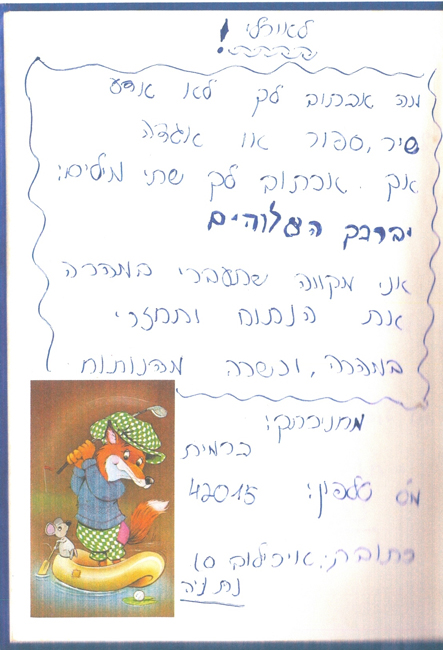 לאורלי !
מה אכתוב לך לא אדע
שיר, ספור או אגדה
אך אכתוב לך שתי מילים:
יברכך האלוהים
אני מקווה שתעברי במהרה
את הנתוח ותחזרי
מהנותוח
כרמית
מס טלפון: 42015
כתובת: 10
נתניה